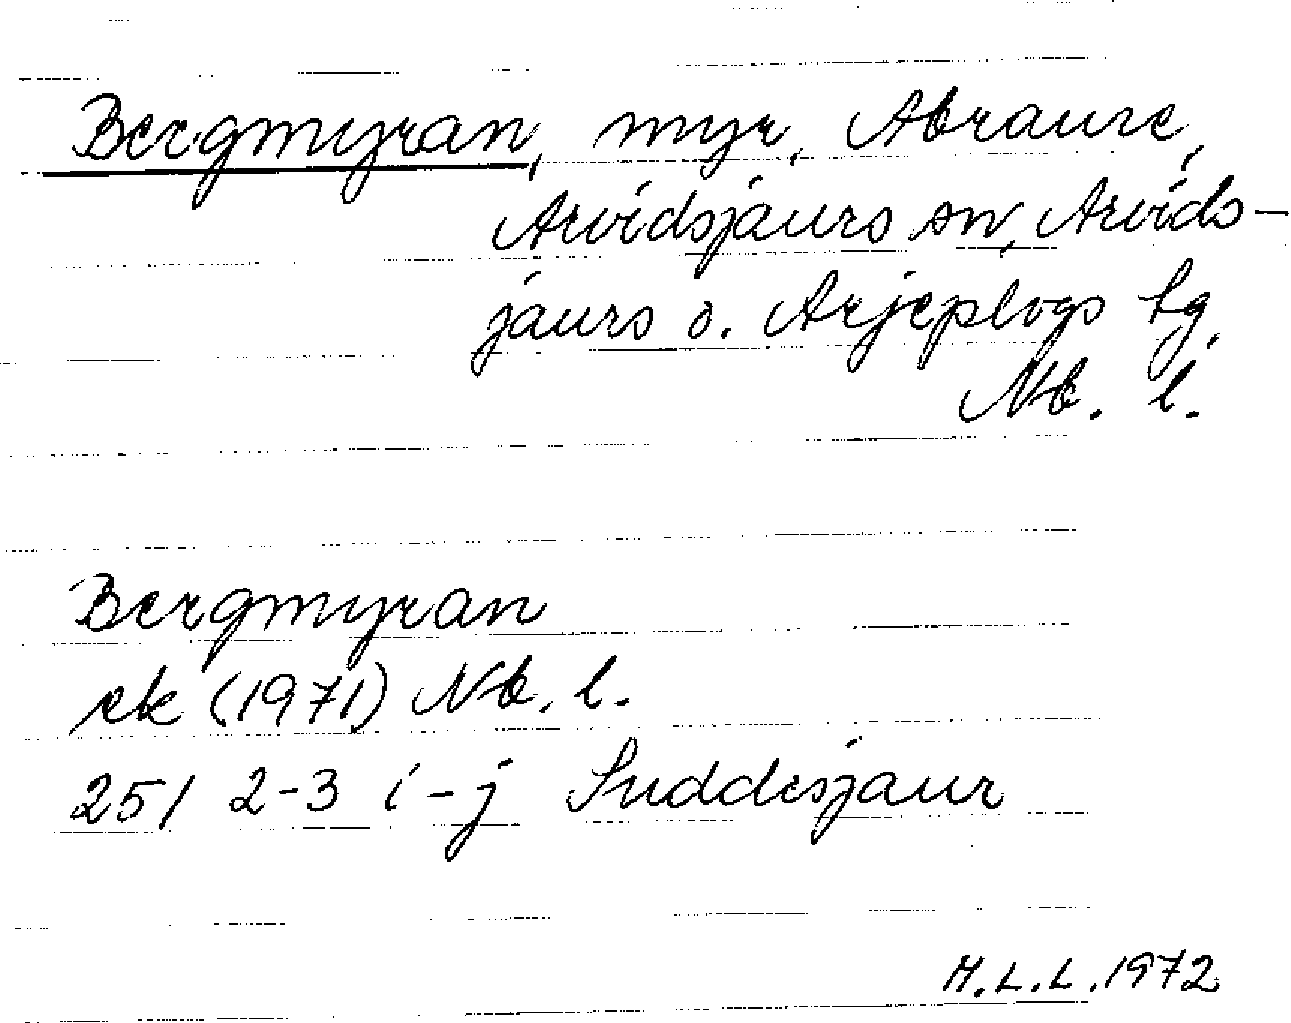 Bergmyran, myr, Abraure,
Arvidsjaurs sn, Arvids-
jaurs o. Arjeplogs tg,
Nb. l.
Bergmyran
ek (1971) Nb. l.
251 2-3 i-j Suddesjaur
M.L.L. 1972